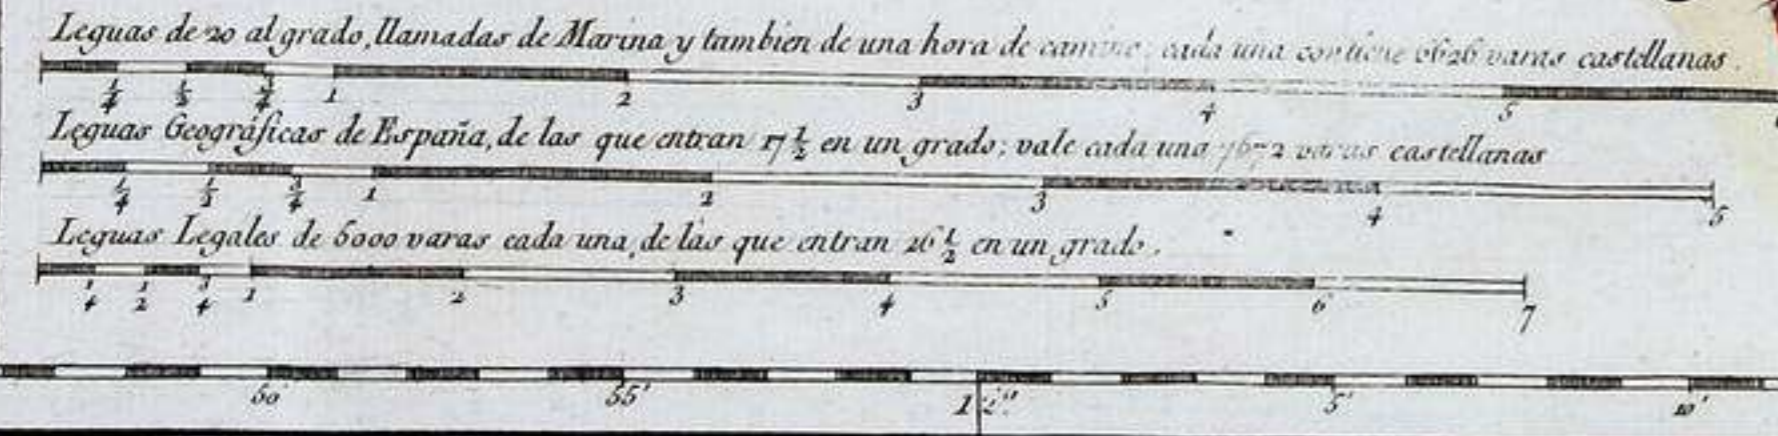 Leguas de 20 al grado, llamadas de Marina y tambien de una hora de camino; cada una contiene 6626 varas castellanas.
1/4 1/2 3/4 1 2 3 4 5
Leguas Geográficas de España, de las que entran 17 1/2 en un grado; vale cada una 7572 varas castellanas
1/4 1/2 3/4 1 2 3 4 5
Leguas Legales de 5000 varas cada una, de las que entran 26 1/2 en un grado.
1/4 1/2 3/4 1 2 3 4 5 6 7
50' 55' 12° 5' 10'